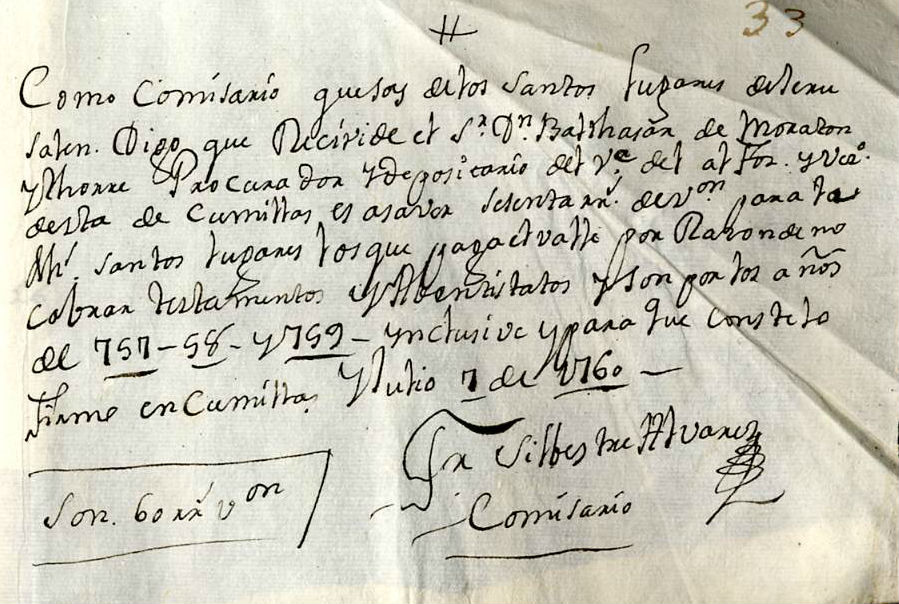 33
Como Comisario que soy de los santos lugares de Jeru
salen. Digo que Recivi de el Sr. Dn. Balthasar de Moraron
y thorre Procurador y depositario del Ve. del alfor. y Va.
desta de Cumillas, es asaver sesenta rrs. de von para los
dhs. santos lugares los que paga el valle por Razon de no
cobrar testamentos y Abentistatos y son por los años
de 757 - 58 - y 759 - ynclusive y para que conste lo
firme en Cumillas y Julio 7 de 1760 -
Fr Silbestre Alvarez
Comisario
Son. 60 rrs von